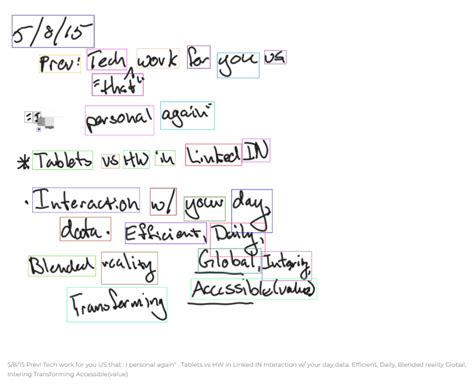 5/8/15
Prev: Tech work for you us
"that"
personal again"
* Tablets vs HW in Linked IN
. Interaction w/ your day,
data. Efficient, Daily,
Blended reality Global,
Transforming Accessible(value)
5/8/15 Prev! Tech work for you US that : I personal again" . Tablets vs HW in Linked IN Interaction w/ your day data. Efficient, Daily, Blended reality Global,
Intering Transforming Accessible(value)